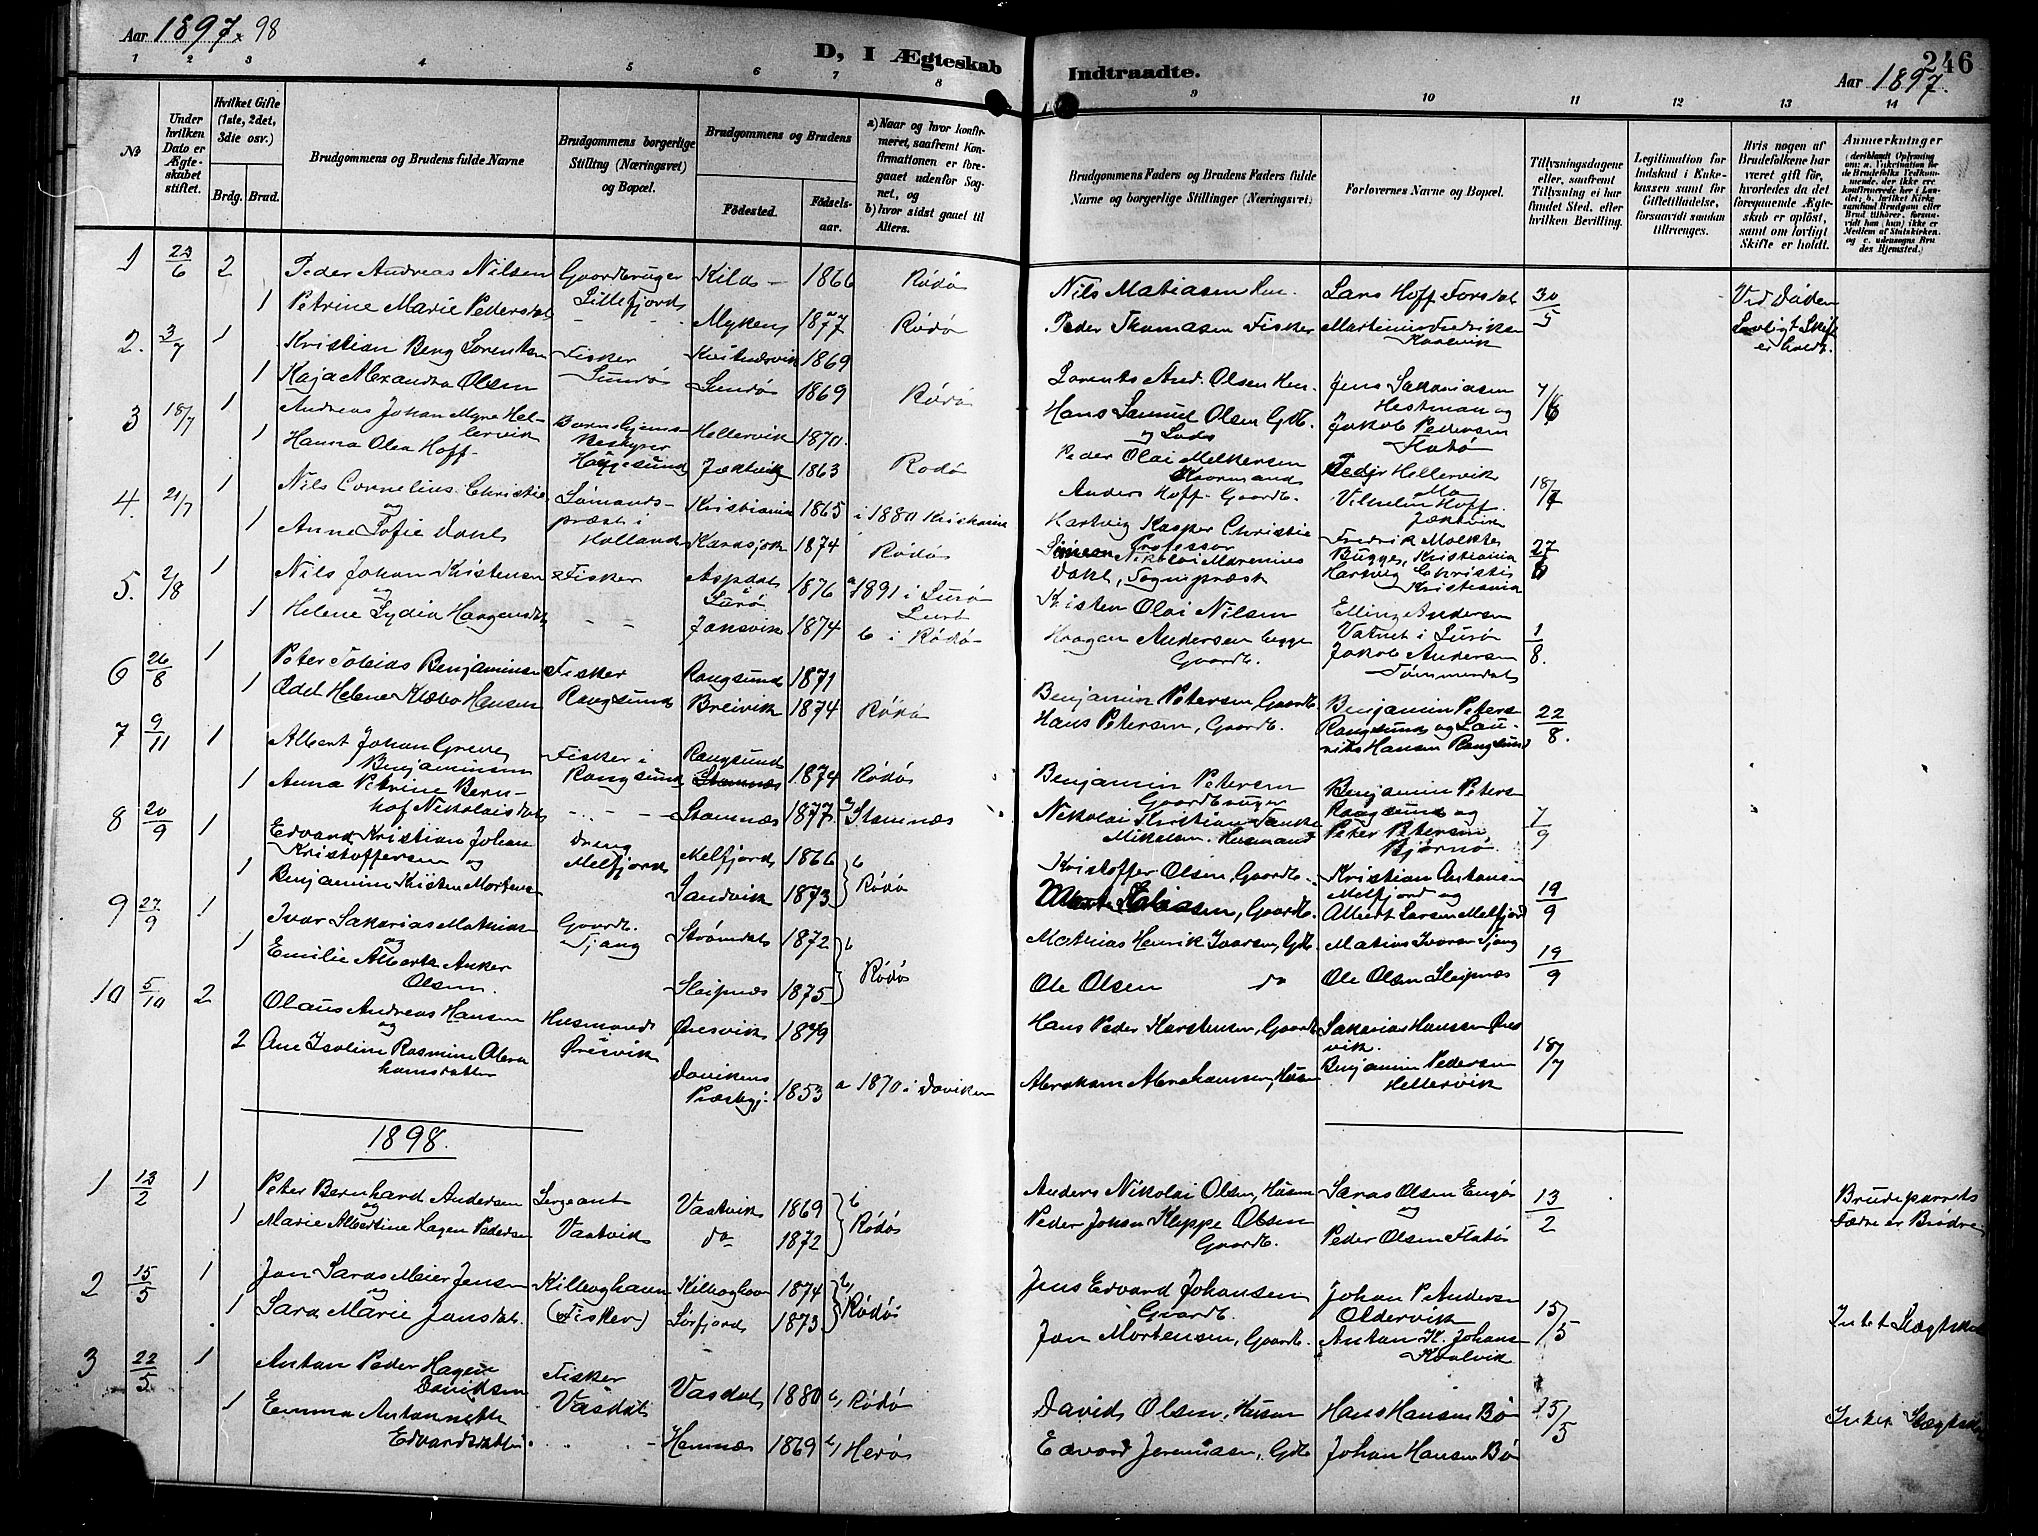 Aar 1897 98
D, I Ægteskab Indtraadte.
246
Aar 1897.
1 2 3 4 5 6 7 8 9 10 11 12 13 14
№
Under hvilken Dato er Ægteskabet stiftet.
Hvilket Gifte (1ste, 2det, 3die osv.)
Brdg. Brud.
Brudgommens og Brudens fulde Navne
Brudgommens borgerlige Stilling (Næringsvei) og Bopæl.
Brudgommens og Brudens
Fødested. Fødselsaar.
a) Naar og hvor konfirmeret, saafremt Konfirmationen er foregaaet udenfor Sognet, og b) hvor sidst gaaet til Alters.
Brudgommens Faders og Brudens Faders fulde Navne og borgerlige Stillinger (Næringsvei)
Forlovernes Navne og Bopæl.
Tillysningsdagene eller, saafremt Tillysning ei har fundet Sted, efter hvilken Bevilling.
Legitimation for Indskud i Enkekassen samt for Giftetilladelse, forsaavidt saadan tiltrænges.
Hvis nogen af Brudefolkene har været gift før, hvorledes da det foregaaende Ægteskab er opløst, samt om lovligt Skifte er holdt.
Anmerkninger
1 23/6 2 Peder Andreas Nilsen Gaardbruger Kild- 1866 Rødø Nils Matiasen Hus. Lars Hoff Forsdal 30/5 Ved Døden
1 Petrine Marie Pedersdat Lillefjord Myken 1877 Rødø Peder Thomasen Fisker Martinus Fredriksen Kaalvik Lovligt Skifte er holdt.
2. 3/7 1 Kristian Berg Lorentsen Fisker 1869 Lorents And. Olsen Hus. Jens Sakariasen 7/6
1 Kaja Alexandra Olsen Sundø Sundø 1869 Rødø Hans Samuel Olsen Gdb. og Lods Hestman og Jakob Pedersen Flatø
3 18/7 1 Andreas Johan Myre Hellervik Hellervik 1870. Peder Olai Melkersen Peder Hellervik
1 Hanna Olea Hoff Haugesund Jektvik 1863 Rødø Anders Hoff Gaardb. Vilhelm Hoff Jektvik 18/7
4. 21/7 1 Nils Cornelius Christie og Sømandspræst i Holland Kristiania 1865 i 1880 Kristiania Hartvig Kasper Christie Professor Fredrik Moltke Bugge, Kristiania 27/6
1 Anne Sofie Dahl Karasjok 1874 Rødø Nikolai Marenius Dahl, Sognepræst Hartvig Christie Kristiania
5. 2/8 1 Nils Johan Kristensen og Fisker Aspdal Lurø 1876 a 1891 i Lurø Kristen Olai Nilsen Elling Andersen Vatnet i Lurø 1/8.
1 Helene Lydia Haagensdat Jensvik 1874 b i Rødø Haagen Andersen begge Gaardb. Jakob Andersen Tømmerdal
6 26/8 1 Peter Tobias Benjaminsen Fisker Rangsund 1871 Benjamin Petersen Gaardb Benjamin Peters
1 Odel Helene Klæbo Hansen Rangsund Breivik 1874 Rødø Hans Petersen, Gaardb. Rangsund og Lauriks Hansen Rangsund 22/8.
7 9/11 1 Albert Johan Greve Benjaminsen Fisker i Rangsund Rangsund 1874 Rødø Benjamin Petersen Gaardbruger Benjamin Peters Rangsund og
1 Anna Petrine Bernhof Nikolaisdat Stamnæs 1877 Stamnæs Nikolai Kristian Tanke Mikalsen. Husmand Peter Petersen Bjørnø. 7/9
8 20/9 1 Edvard Kristian Johan Kristoffersen og Dreng Melfjord Melfjord 1866 Kristoffer Olsen, Gaardb. Kristian Antonsen Melfjord og
1 Benjamine Kirsten Mortens Sandvik 1873 b Rødø Gaardb. Albert Larsen Melfjord 19/9
9 27/9 1 Ivar Sakarias Mathias og Gaardb. Tjong Strømdal 1872 Mathias Henrik Ivarsen, Gdb Matias Ivarsen Tjong 19/9
1 Emilie Alberta Anker Olsen. Sleipnæs 1875 b Rødø Ole Olsen do Ole Olsen Sleipnæs
10 5/10 2 Olaus Andreas Hansen og Husmand Øresvik Øresvik 1849 Hans Peder Karstensen, Gaardb Sakarias Hansen Øresvik. 18/7
2 Ane Iseline Rasmine Abrahamsdatter Davikens Præstegj. 1853 a 1870 i Daviken Abraham Abrahamsen, Husm Benjamin Pedersen Hellervik
1898.
1 13/2 1 Peter Bernhard Andersen og Sergeant Vaatvik 1869 Anders Nikolai Olsen, Husm Saras Olsen Engø og 13/2 Brudeparrets
1 Marie Albertine Hagen Pedersen Vaatvik do 1872 b Rødø Peder Johan Kleppe Olsen Gaardb. Peder Olsen Flatø Fædre er Brødre
2 15/5 1 Jon Saras Meier Jensen og Kilboghavn Kilboghavn 1874 Jens Edvard Johansen Gaardb. Johan P. Andersen Oldervik 15/5
1 Sara Marie Jonsdat. (Fisker) Sørfjord 1873 b/ Rødø Jon Mortensen, Gaardb. Anton K. Johans Kaalvik Intet Slægtskab
3 22/5 1 Anton Peder Hagen Davidsen Fisker Vasdal Vasdal 1880 b/ Rødø David Olsen, Husm Hans Hansen Bø 15/5 Intet Slægtskab
1 Emma Antonnette Edvardsdatter Hemnæs 1869 b/ Herø Edvard Jeremiasen, Gdb Johan Hansen Bø